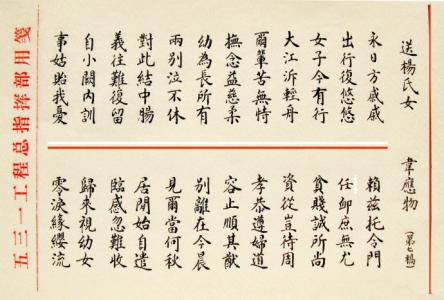 送楊氏女
永日方戚戚
出行復悠悠
女子今有行
大江泝輕舟
爾輩苦無恃
撫念益慈柔
幼為長所育
兩別泣不休
對此結中腸
義往難復留
自小闕內訓
事姑貽我憂
韋應物（第七稿）
賴茲托令門
任卹庶無尤
貧賤誠所尚
資從豈待周
孝恭遵婦道
容止順其猷
別離在今晨
見爾當何秋
居閑始自遣
臨感忽難收
歸來視幼女
零淚緣纓流
五三一工程总指揮部用箋